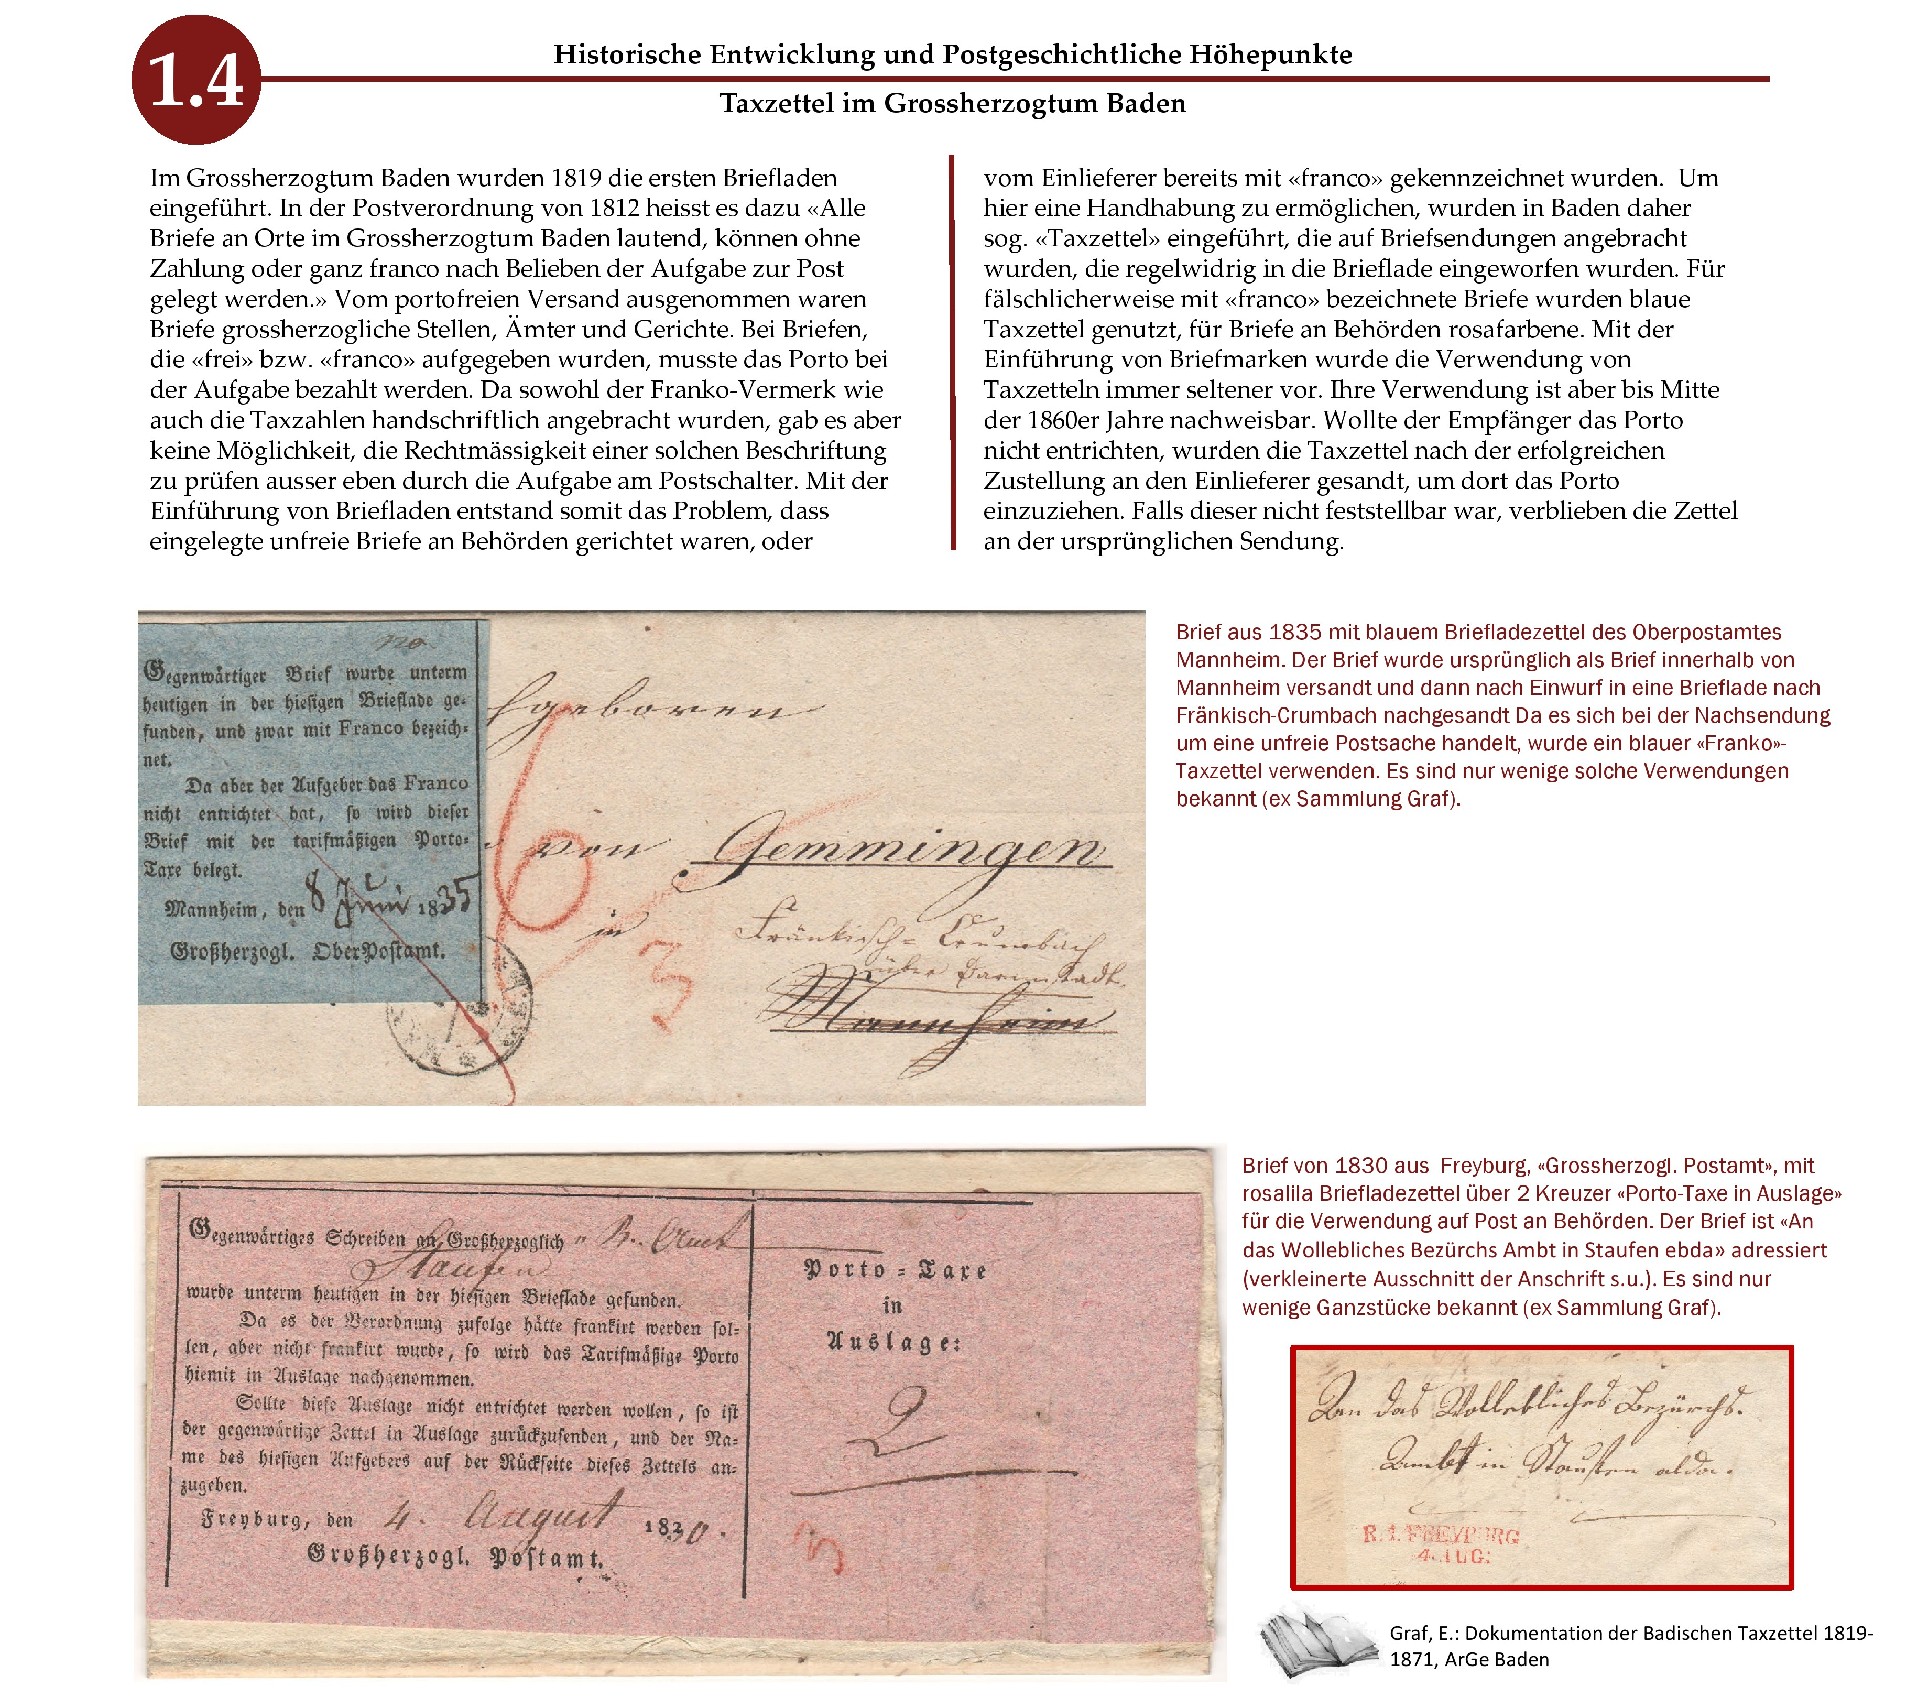 1.4
Historische Entwicklung und Postgeschichtliche Höhepunkte
Taxzettel im Grossherzogtum Baden
Im Grossherzogtum Baden wurden 1819 die ersten Briefladen
eingeführt. In der Postverordnung von 1812 heisst es dazu «Alle
Briefe an Orte im Grossherzogtum Baden lautend, können ohne
Zahlung oder ganz franco nach Belieben der Aufgabe zur Post
gelegt werden.» Vom portofreien Versand ausgenommen waren
Briefe grossherzogliche Stellen, Ämter und Gerichte. Bei Briefen,
die «frei» bzw. «franco» aufgegeben wurden, musste das Porto bei
der Aufgabe bezahlt werden. Da sowohl der Franko-Vermerk wie
auch die Taxzahlen handschriftlich angebracht wurden, gab es aber
keine Möglichkeit, die Rechtmässigkeit einer solchen Beschriftung
zu prüfen ausser eben durch die Aufgabe am Postschalter. Mit der
Einführung von Briefladen entstand somit das Problem, dass
eingelegte unfreie Briefe an Behörden gerichtet waren, oder
vom Einlieferer bereits mit «franco» gekennzeichnet wurden.  Um
hier eine Handhabung zu ermöglichen, wurden in Baden daher
sog. «Taxzettel» eingeführt, die auf Briefsendungen angebracht
wurden, die regelwidrig in die Brieflade eingeworfen wurden. Für
fälschlicherweise mit «franco» bezeichnete Briefe wurden blaue
Taxzettel genutzt, für Briefe an Behörden rosafarbene. Mit der
Einführung von Briefmarken wurde die Verwendung von
Taxzetteln immer seltener vor. Ihre Verwendung ist aber bis Mitte
der 1860er Jahre nachweisbar. Wollte der Empfänger das Porto
nicht entrichten, wurden die Taxzettel nach der erfolgreichen
Zustellung an den Einlieferer gesandt, um dort das Porto
einzuziehen. Falls dieser nicht feststellbar war, verblieben die Zettel
an der ursprünglichen Sendung.
Gegenwärtiger Brief wurde unterm
heutigen in der hiesigen Brieflade ge-
funden, und zwar mit Franco bezeich-
net.
Da aber der Aufgeber das Franco
nicht entrichtet hat, so wird dieser
Brief mit der tarifmäßigen Porto-
Taxe belegt.
Mannheim, den 8 Juni 1835
Großherzogl. OberPostamt.
hgeboren
6
von Gemmingen
in
3
Fränkisch-Crumbach
über Darmstadt
Mannheim
Brief aus 1835 mit blauem Briefladezettel des Oberpostamtes
Mannheim. Der Brief wurde ursprünglich als Brief innerhalb von
Mannheim versandt und dann nach Einwurf in eine Brieflade nach
Fränkisch-Crumbach nachgesandt Da es sich bei der Nachsendung
um eine unfreie Postsache handelt, wurde ein blauer «Franko»-
Taxzettel verwenden. Es sind nur wenige solche Verwendungen
bekannt (ex Sammlung Graf).
Gegenwärtiges Schreiben an Großherzoglich B. Amt
Staufen
wurde unterm heutigen in der hiesigen Brieflade gefunden.
Da es der Verordnung zufolge hätte frankirt werden sol-
len, aber nicht frankirt wurde, so wird das Tarifmäßige Porto
hiemit in Auslage nachgenommen.
Sollte diese Auslage nicht entrichtet werden wollen, so ist
der gegenwärtige Zettel in Auslage zurückzusenden, und der Na-
me des hiesigen Aufgebers auf der Rückseite dieses Zettels an-
zugeben.
Freyburg, den 4. August 1830.
Großherzogl. Postamt.
Porto-Taxe
in
Auslage:
2
3
Brief von 1830 aus  Freyburg, «Grossherzogl. Postamt», mit
rosalila Briefladezettel über 2 Kreuzer «Porto-Taxe in Auslage»
für die Verwendung auf Post an Behörden. Der Brief ist «An
das Wollebliches Bezürchs Ambt in Staufen ebda» adressiert
(verkleinerte Ausschnitt der Anschrift s.u.). Es sind nur
wenige Ganzstücke bekannt (ex Sammlung Graf).
An das Wollebliches Bezürchs.
Ambt in Staufen
R.1.FREYBURG
4.AUG:
Graf, E.: Dokumentation der Badischen Taxzettel 1819-
1871, ArGe Baden